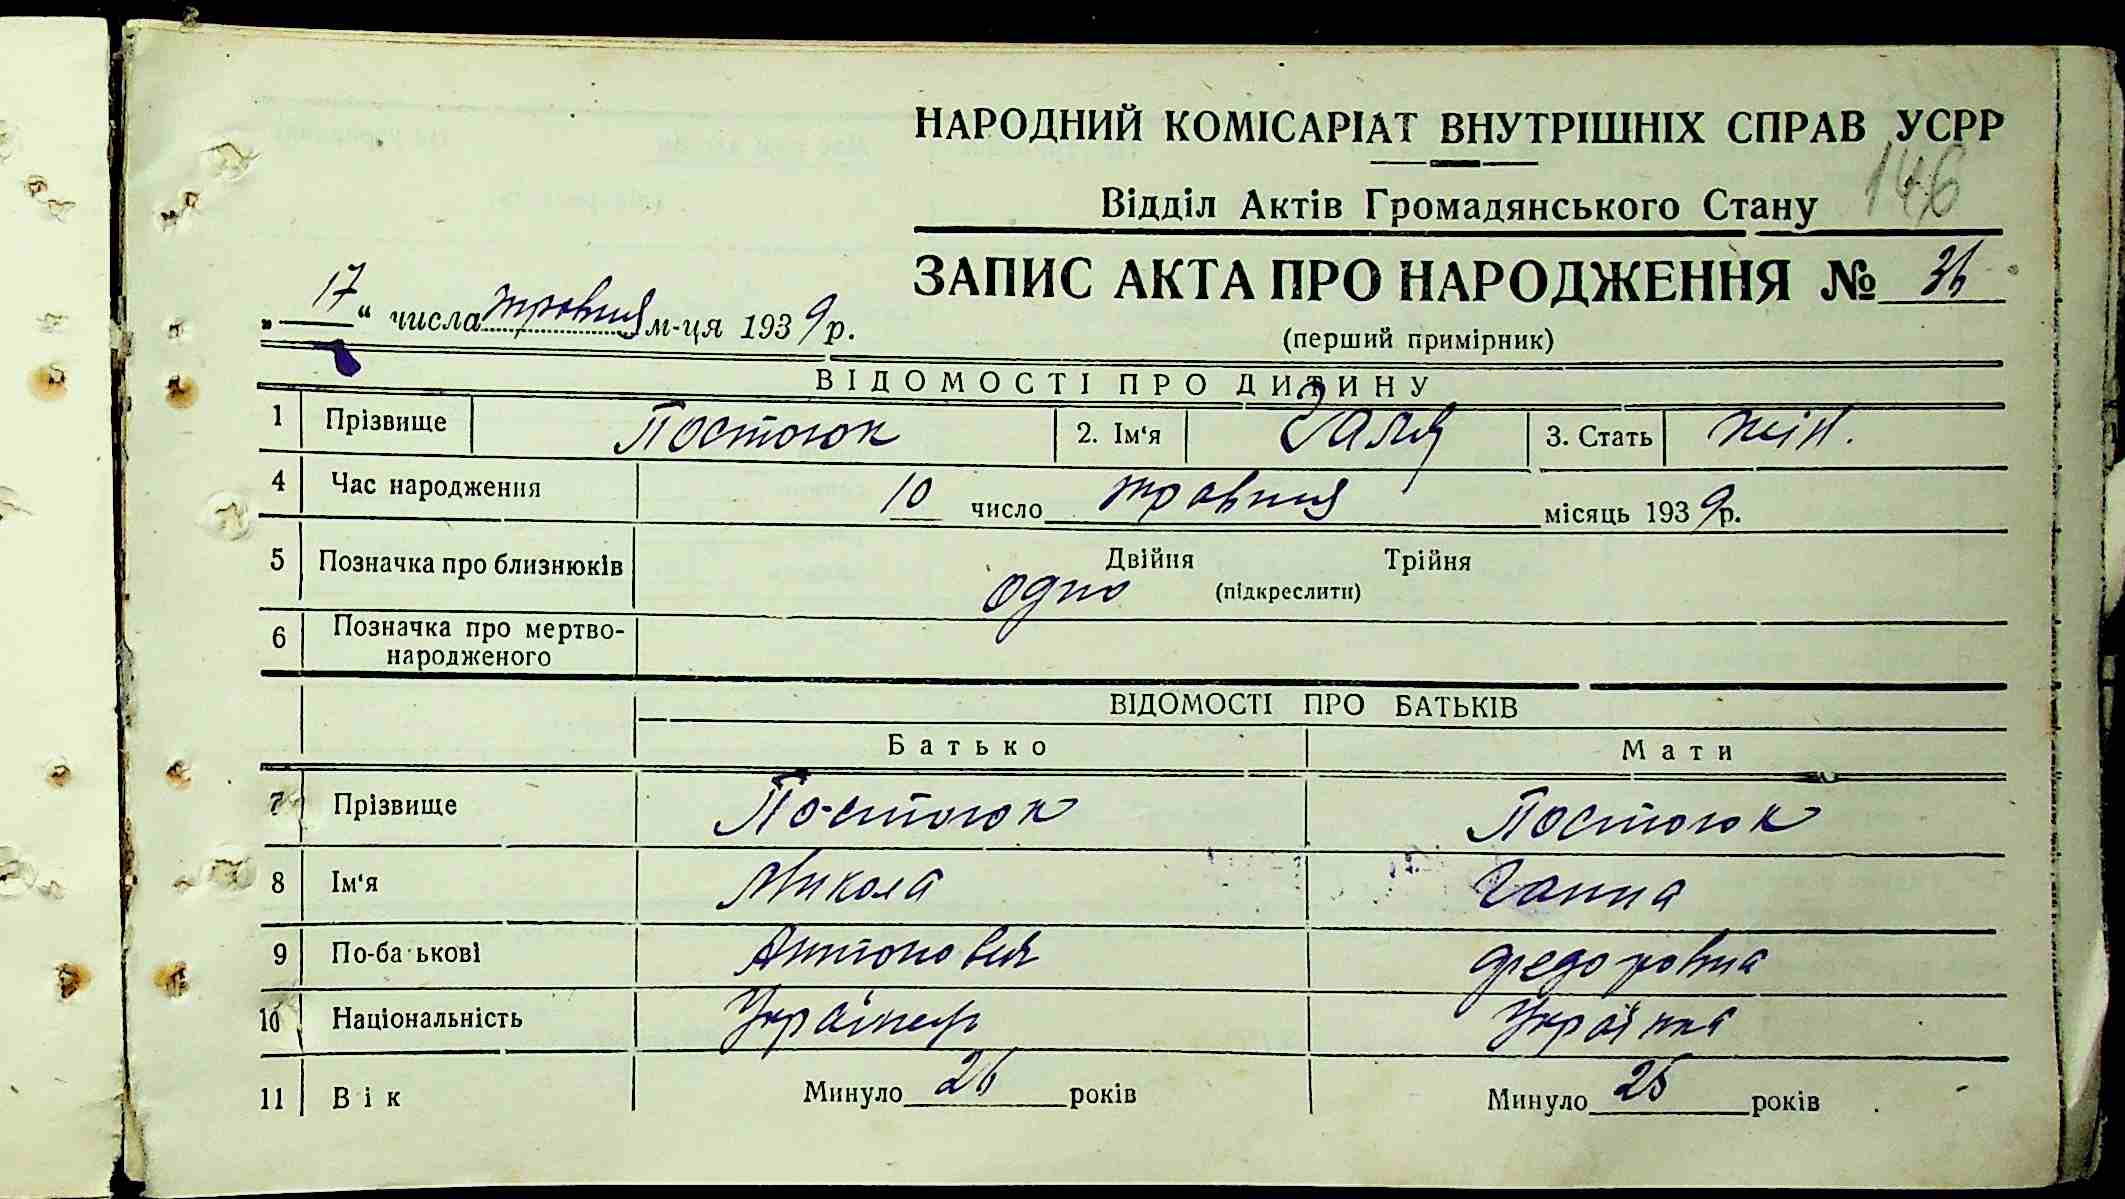 НАРОДНИЙ КОМІСАРІАТ ВНУТРІШНІХ СПРАВ УСРР
146
Відділ Актів Громадянського Стану
ЗАПИС АКТА ПРО НАРОДЖЕННЯ № 36
„17“ числа травня м-ця 1939 р.
(перший примірник)
ВІДОМОСТІ ПРО ДИТИНУ
1 Прізвище Постоюк 2. Ім‘я Галя 3. Стать жін.
4 Час народження 10 число травня місяць 1939 р.
5 Позначка про близнюків Двійня Трійня
одно (підкреслити)
6 Позначка про мертво-
народженого
ВІДОМОСТІ ПРО БАТЬКІВ
Батько Мати
7 Прізвище Постоюк Постоюк
8 Ім‘я Микола Ганна
9 По-ба ькові Антонович Федоровна
10 Національність Українець Українка
11 Вік Минуло 26 років Минуло 25 років